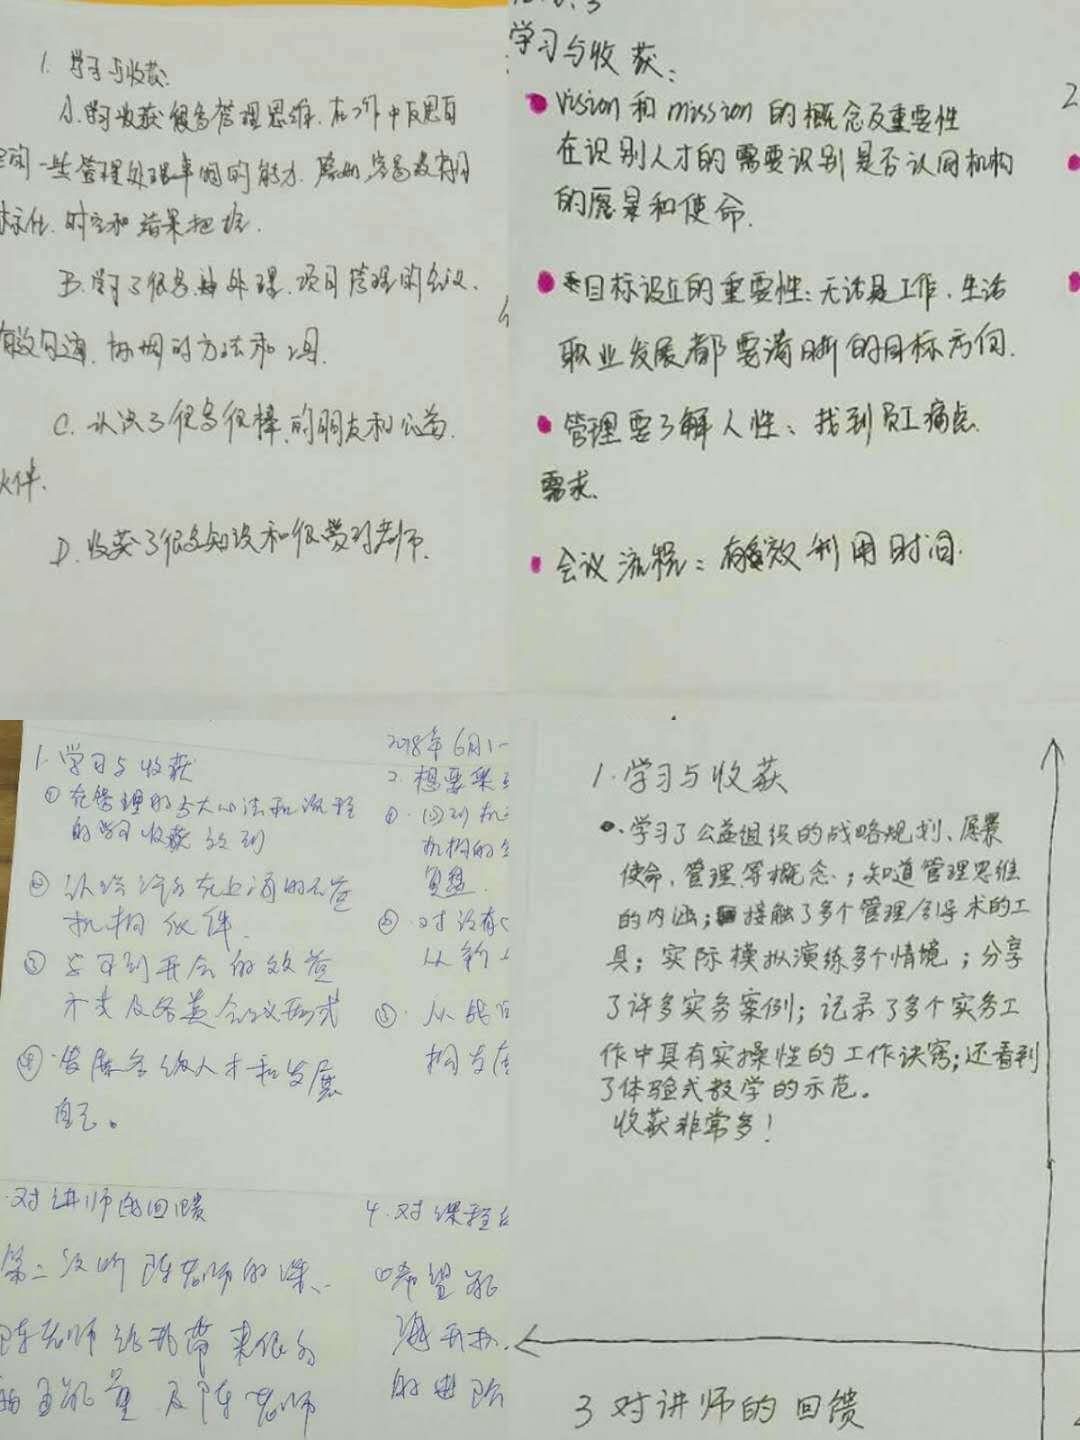 1. 学习与收获
A. 学习收获很多管理思维.在工作中反思自
一些管理处理事间的能力.
标化.时空和结果把控.
B. 学习了很多 处理.项目管理的会议.
有效沟通.协调的方法和工具.
C. 认识了很多很棒的朋友和公益.
伙伴.
D. 收获了很多知识和很爱的老师.
学习与收获:
Vision 和 mission 的概念及重要性
在识别人才的需要识别是否认同机构
的愿景和使命.
目标设立的重要性:无论是工作.生活
职业发展都需清晰的目标方向.
管理要了解人性、找到员工痛点.
需求.
会议流程:有效利用时间.
1. 学习与收获
① 在管理的 大心法和流程
的学习收获
② 认识许多在上海的公益
机构伙伴.
③ 学习到开会的效益
及各类会议形式
④ 发展各级人才和发展
自己。
2018年6月1-
2. 想要采
① 回到机
机构的
复盘.
② 对没有
从新
③ 从
构发
对讲师的回馈
第二次听陈老师的课、
陈老师给我带来很多
正能量及陈老师
4. 对课程
① 希望能
海开办.
的进阶
1. 学习与收获
学习了公益组织的战略规划、愿景
使命、管理等概念;知道管理思维
的内涵;接触了多个管理/引导术的工
具;实际模拟演练多个情境;分享
了许多实务案例;记录了多个实务工
作中具有实操性的工作诀窍;还看到
了体验式教学的示范。
收获非常多!
3 对讲师的回馈